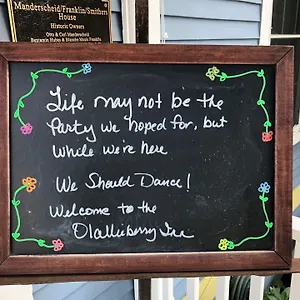 Manderscheid/Franklin/Smithers
House
Historic Owners
Otto & Carl Manderscheid
Life may not be the
Party we hoped for, but
while we're here
We Should Dance!
Welcome to the
Olallieberry Inn